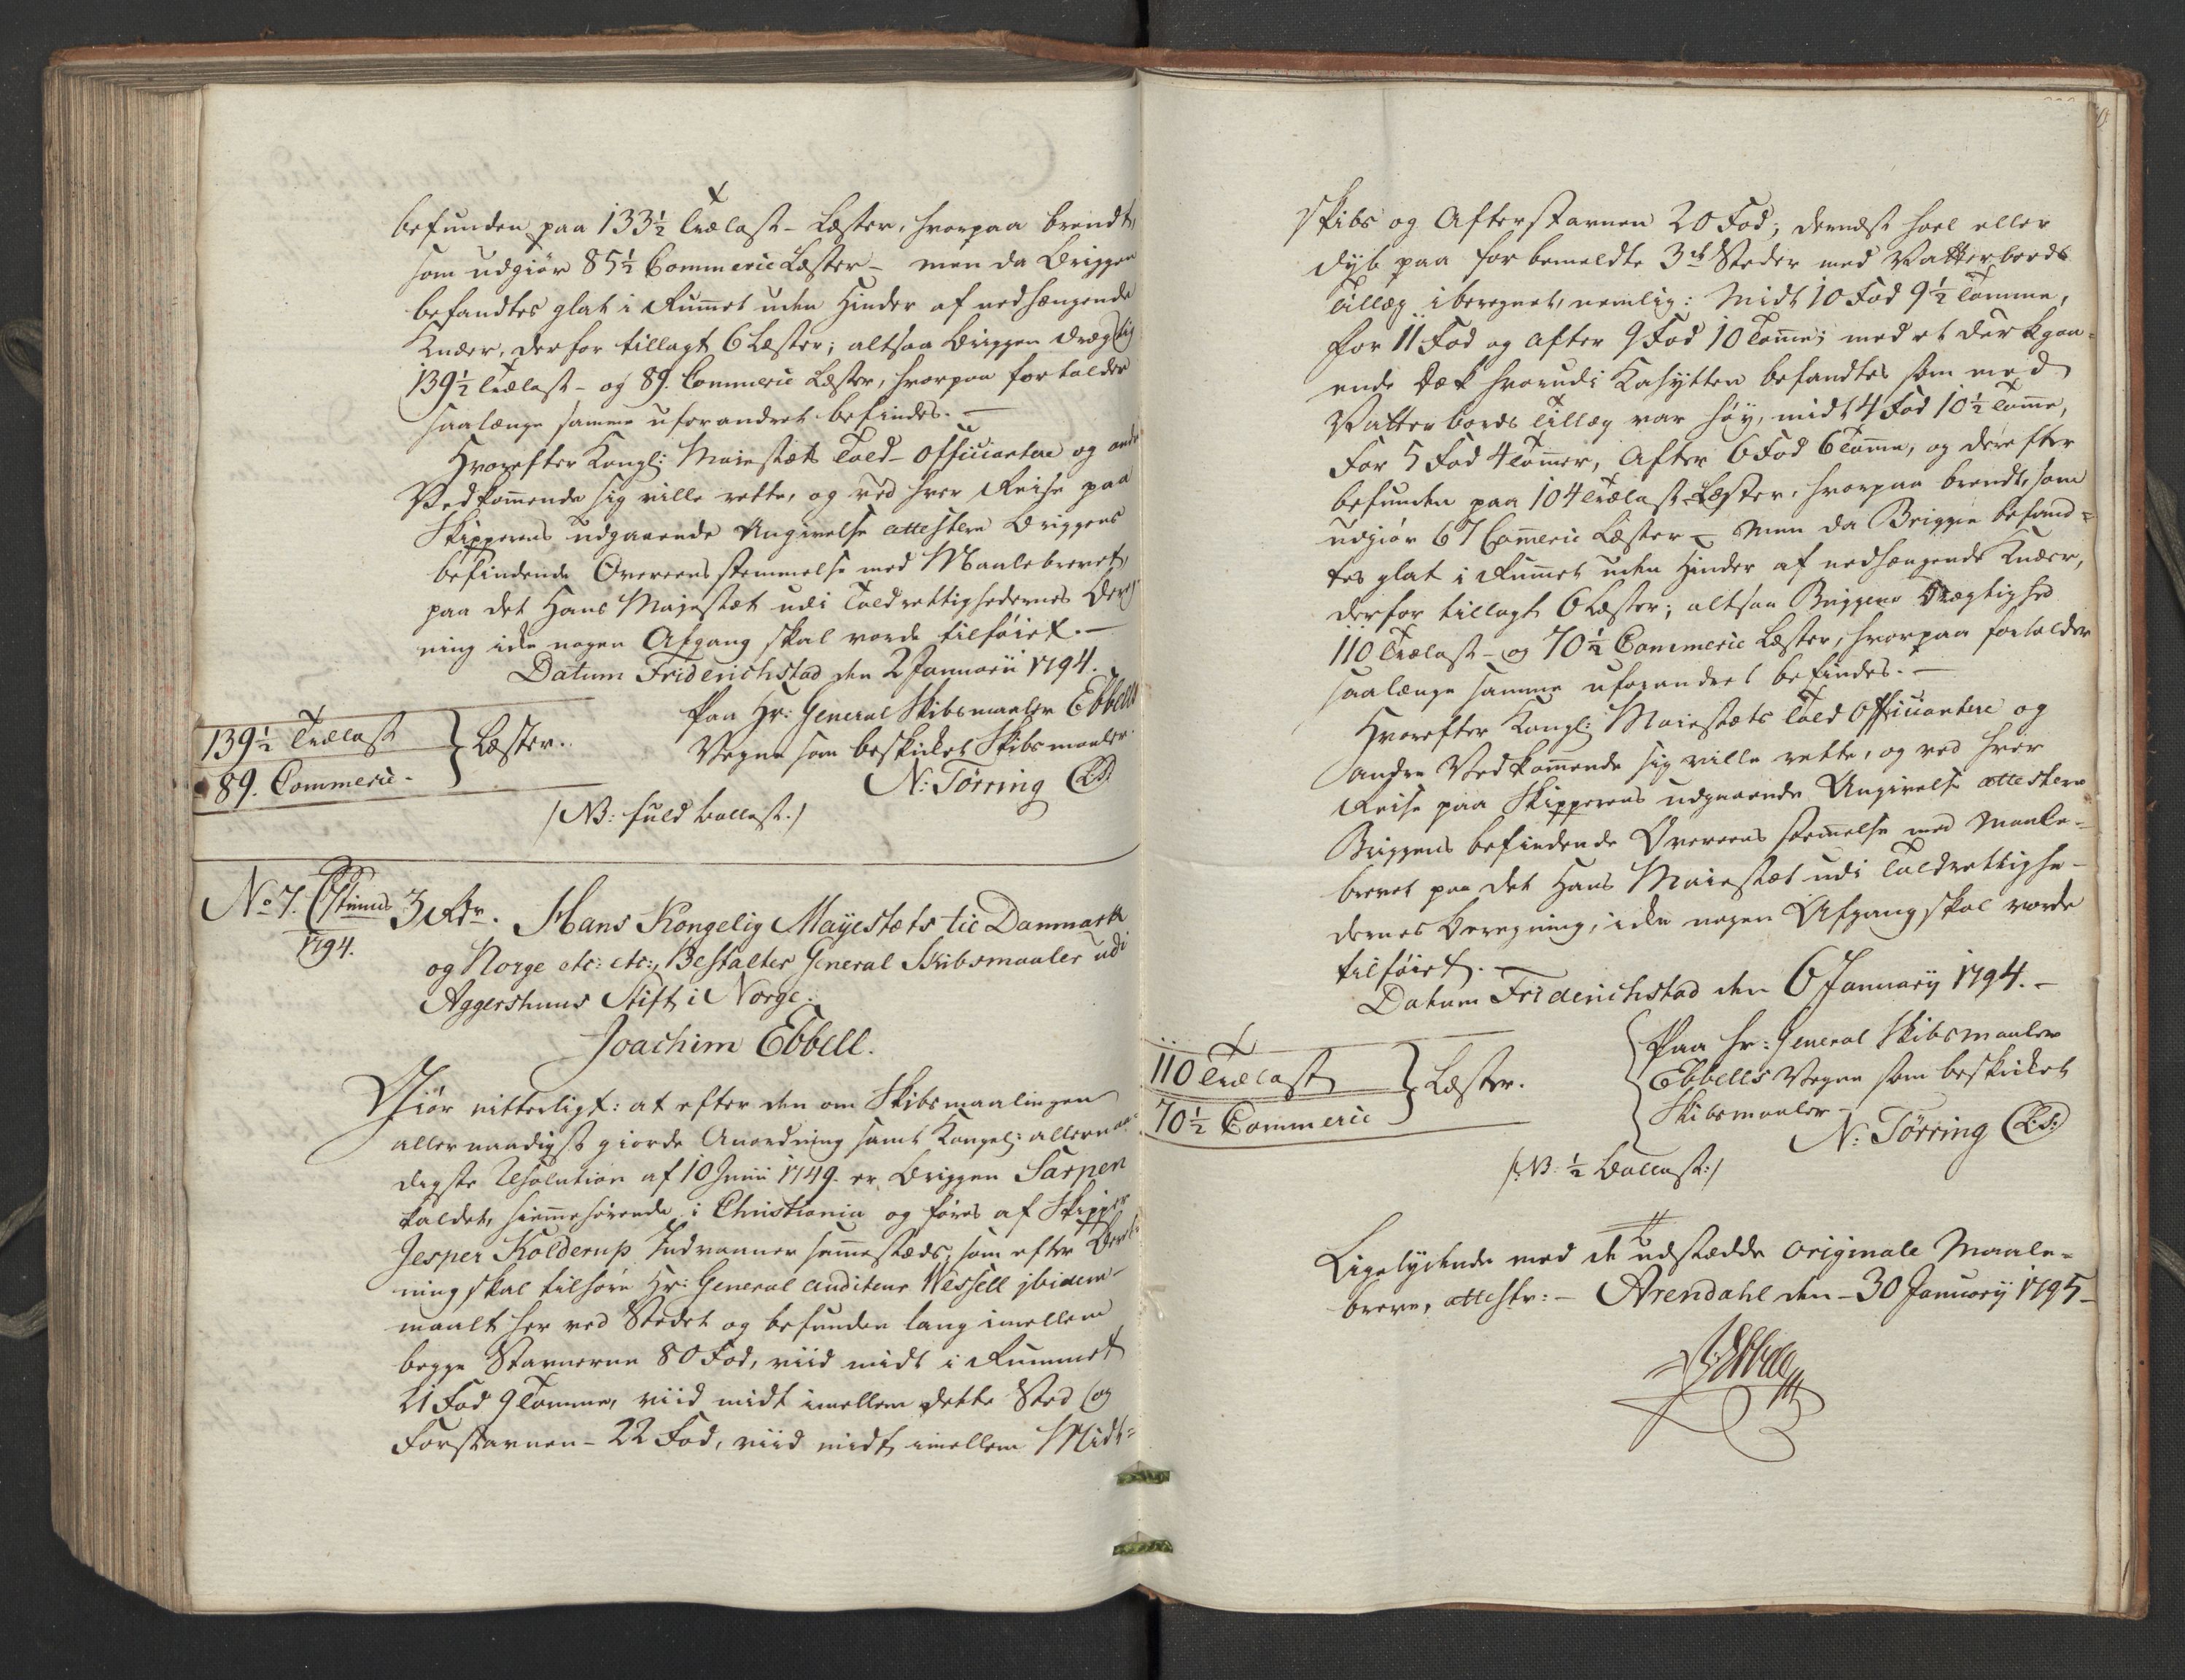 befunden paa 133½ Trælast-Læster, hvorpaa brendt,
som udgiør 85½ Commerce Læster – men da Briggen
befandtes glat i Rummet uden Hinder af nedhængende
Knæer, derfor tillagt 6 Læster; altsaa Briggen drægtig
139½ Trælast- og 89. Commerce Læster, hvorpaa fortolder
saalænge samme uforandret befindes. –
Hvorefter Kongl: Majestæts Told-Officiantere og andre
Vedkommende sig ville rette, og ved hver Reise paa
Skipperens udgaaende Angivelse attestere Briggens
befindende Overeensstemmelse med Maalebrevet,
paa det Hans Majestæt udi Toldrettighedernes Bereg
ning ikke nogen Afgang skal vorde tilføiet. –
Datum Friderichstad den 2 Januarii 1794.
Paa Hr: General Skibsmaaler Ebbells
Vegne som beskikket Skibsmaaler
N: Tørring (L.S.)
139½ Trælast
89. Commerce -
} Læster.
/NB: fuld Ballast./
No 7.
1794.
3 Rdr. Hans Kongelig Mayestets til Danmark
og Norge etc: etc:, Bestalter General Skibsmaaler udi
Aggershuus Stift i Norge.
Joachim Ebbell.
Giør vitterligt: at efter den om Skibsmaalingen
allernaadigst giorde Anordning samt Kongel: allernaa
digste Resolution af 10 Junii 1749. er Briggen Sarpen
kaldet, hiemmehørende i Christiania og føres af Skipper
Jesper Kolderup Indvaaner sammestæds, som efter Beret-
ning skal tilhøre Hr: General Auditeur Wessell ibidem –
maalt her ved Stedet og befunden lang imellem
begge Stavnerne 80 Fod, viid midt i Rummet
21 Fod 9 Tomme, viid midt imellem dette Sted og
Forstavnen – 22 Fod, viid midt imellem Midt-
skibs og Afterstavnen 20 Fod; dernæst hoel eller
dyb paa forbemeldte 3de Steder med Vatterbords
Tillæg iberegnet, nemlig: Midt 10 Fod 9½ Tomme,
For 11 Fod og After 9 Fod 10 Tomme; med et Dækgaa-
ende Dæk hvorudi Kahytten befandtes som med
Vatterbords Tillæg var høy, midt 4 Fod 10½ Tomme,
For 5 Fod 4 Tommer, After 6 Fod 6 Tomme, og derefter
befunden paa 104 Trælast-Læster, hvorpaa brendt, som
udgiør 67 Commerce Læster – Men da Briggen befand-
tes glat i Rummet uden Hinder af nedhængende Knæer,
derfor tillagt 6 Læster; altsaa Briggens Drægtighed
110 Trælast- og 70½ Commerce Læster, hvorpaa fortolder
saalænge samme uforandret befindes. –
Hvorefter Kongl: Majestæts Told Officiantere og
andre Vedkommende sig ville rette, og ved hver
Reise paa Skipperens udgaaende Angivelse attestere
Briggens befindende Overeensstemmelse med Maale-
brevet paa det Hans Majestæt udi Toldrettighe-
dernes Beregning, ikke nogen Afgang skal vorde
tilføiet. –
Datum Friderichstad den 6 Januarij 1794. –
Paa Hr: General Skibsmaaler
Ebbells Vegne som beskikket
Skibsmaaler –
N: Tørring (L.S.)
110 Trælast
70½ Commerce
} Læster.
/:NB: ½ Ballast:/
Ligelydende med de udstædde originale Maale-
breve, attestr: – Arendahl den – 30 Januarij 1795 –
Ebbell